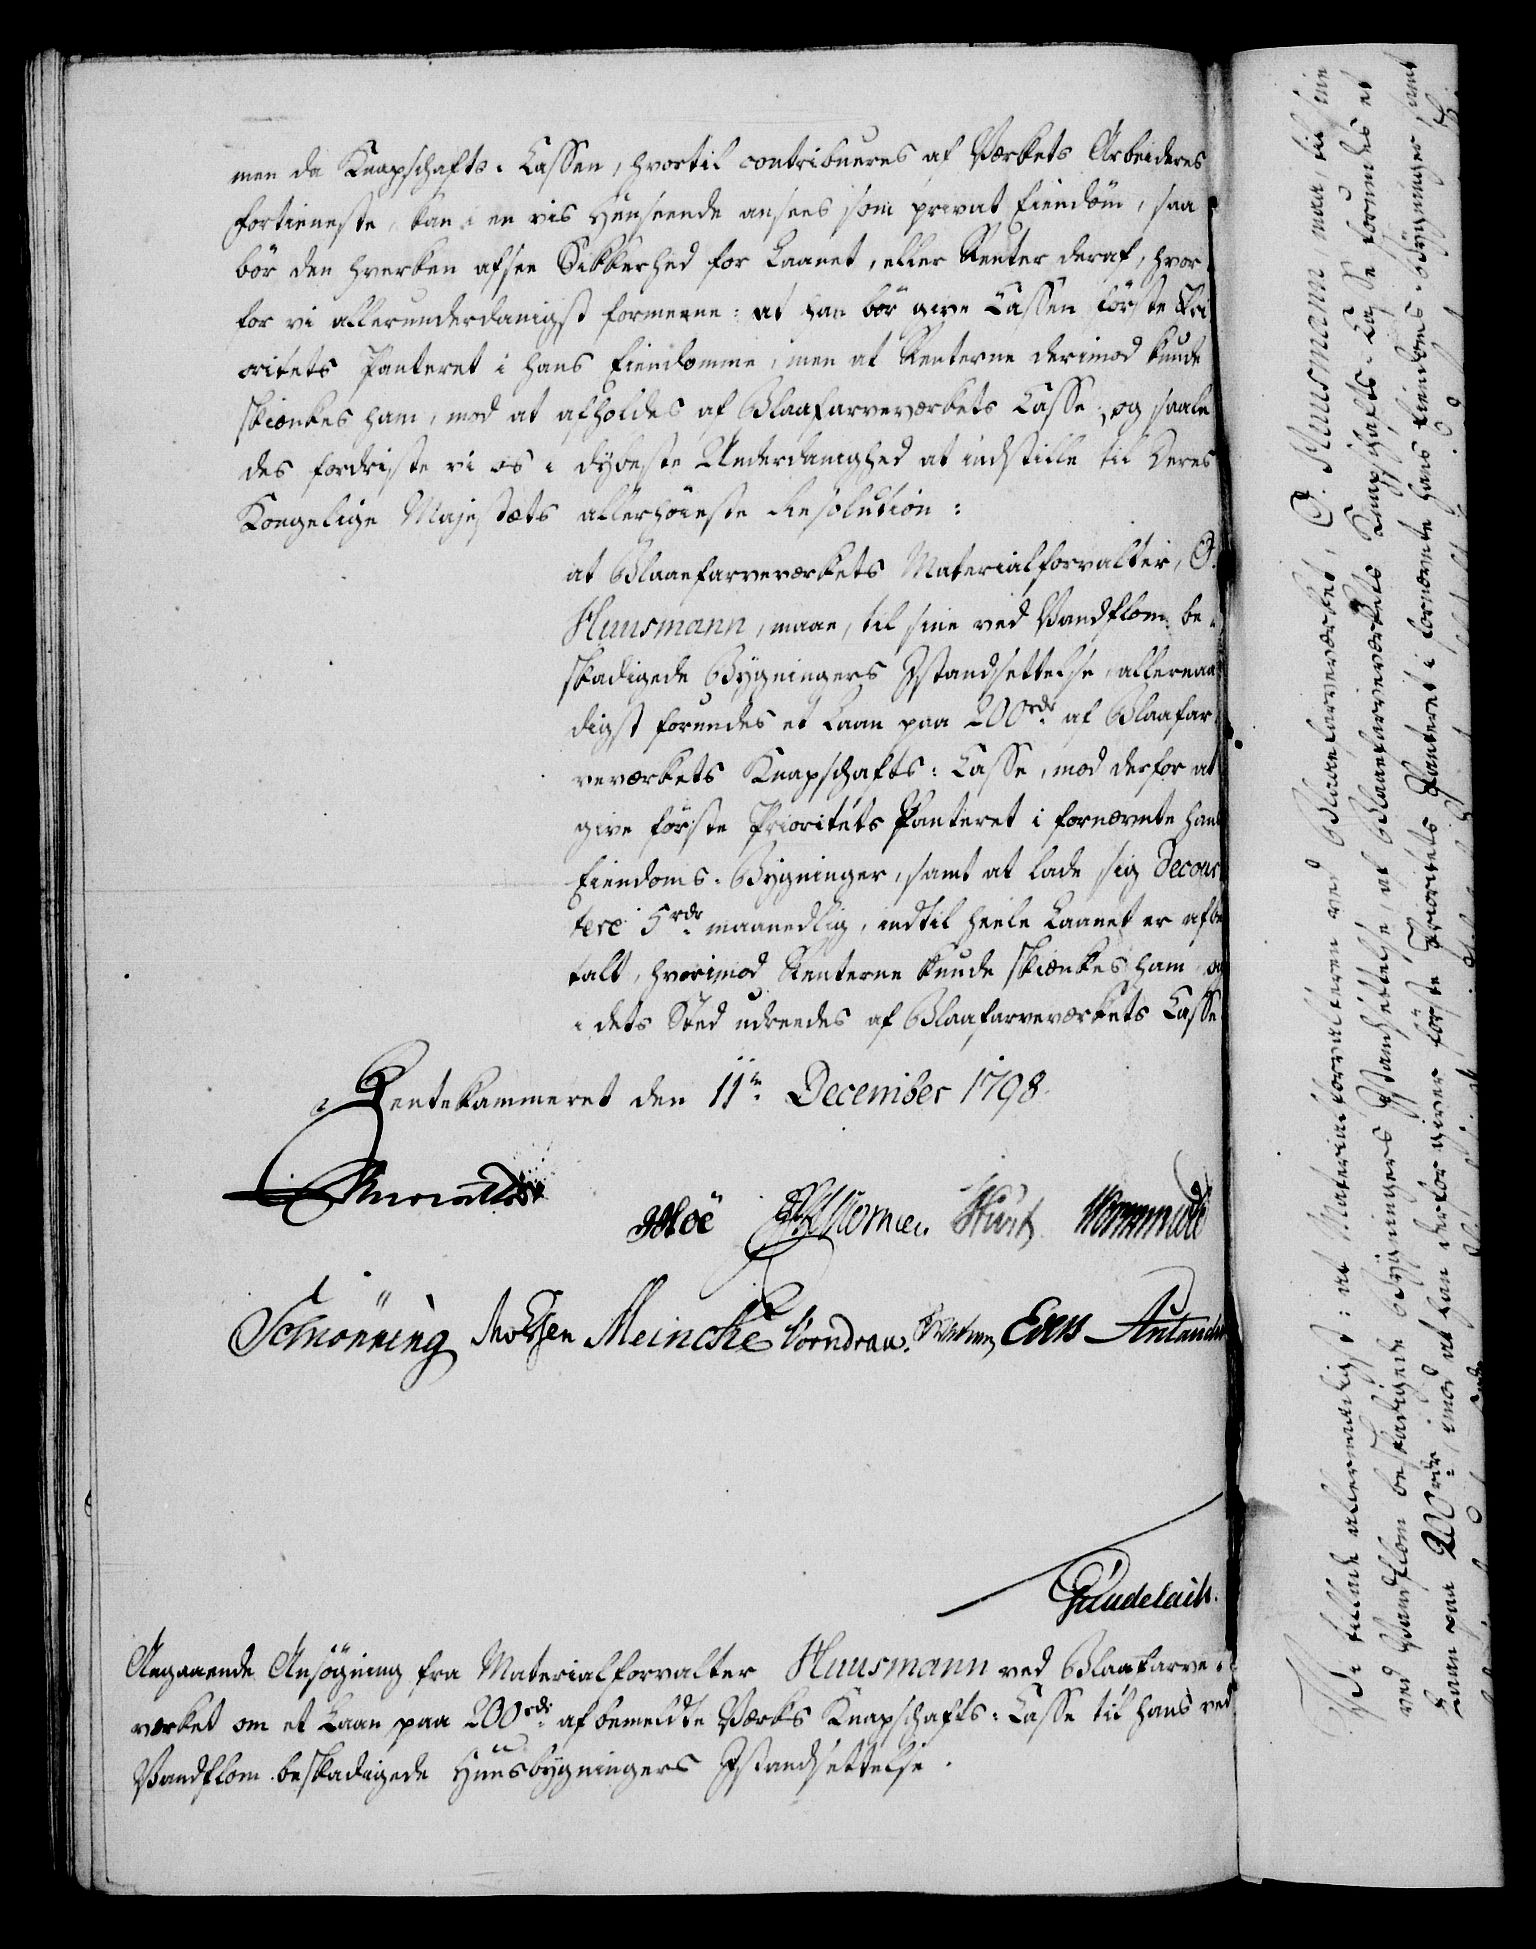 men da Knapschafts-Cassen, hvortil contribueres af Værkets Arbeideres
fortieneste, kan i en vis Henseende ansees som privat Eiendom, saa
bör den hverken afsee Sikkerhed for Laanet, eller Renter deraf, hvor-
for vi allerunderdanigst formeene: at han bör give Cassen förste Pri
oritets Panteret i hans Eiendomme, men at Renterne derimod kunde
skiænkes ham, mod at afholdes af Blaafarveværkets Casse, og saale
des fordriste vi os i dybeste Underdanighed at indstille til Deres
Kongelige Majestæts allerhöieste Resolution:
at Blaaefarveværkets Materialforvalter, O.
Huusmann, maae, til sine ved Vandflom be-
skadigede Bygningers Istandsettelse, allernaa
digst forundes et Laan paa 200 rdr af Blaafar
veværkets Knapschafts-Casse, mod derfor at
give förste Prioritets Panteret i fornævnte hans
Eiendoms-Bygninger, samt at lade sig decour
tere 5 rdr maanedlig, indtil heele Laanet er afbe
talt, hvorimod Renterne kunde skiænkes ham og
i dets Sted udredes af Blaafarveværkets Casse.
Rentekammeret den 11te December 1798.
Moe
Schönning Meincke Vorndran.
Gündelach.
Angaaende Ansögning fra Materialforvalter Huusmann ved Blaafarve-
værket om et Laan paa 200 rdr af bemeldte Værks Knapschafts-Casse til hans ved
Vandflom beskadigede Huusbygningers Istandsettelse.
Vi tillade allernaadigst: at Materialforvalteren ved Blaaefarveværket, O. Huusmann maa, til sine
ved Vandflom beskadigede Bygningers Istandsettelse, af Blaaefarveværkets Knapschafts-Casse forundes et
Laan paa 200 rdr, imod at han derfor giver förste Prioritets Panteret i fornævnte hans Eiendoms-Bygninger, samt